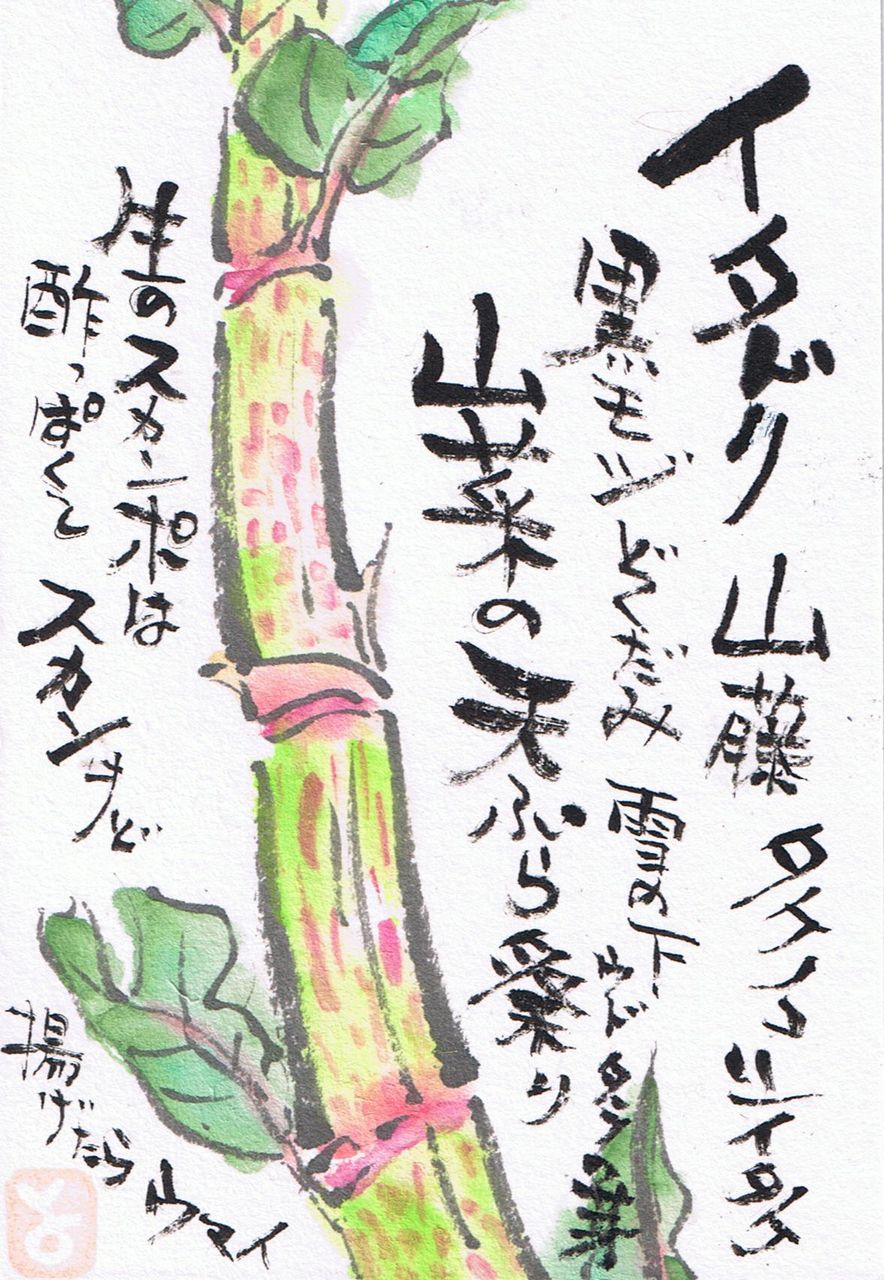 イタドリ 山藤 タケノコ シイタケ
黒モジ どくだみ 雪の下 山ウド タラの芽
山菜の天ぷら乗り
生のスカンポは
酢っぱくて スカンチど
揚げたら ウマイ